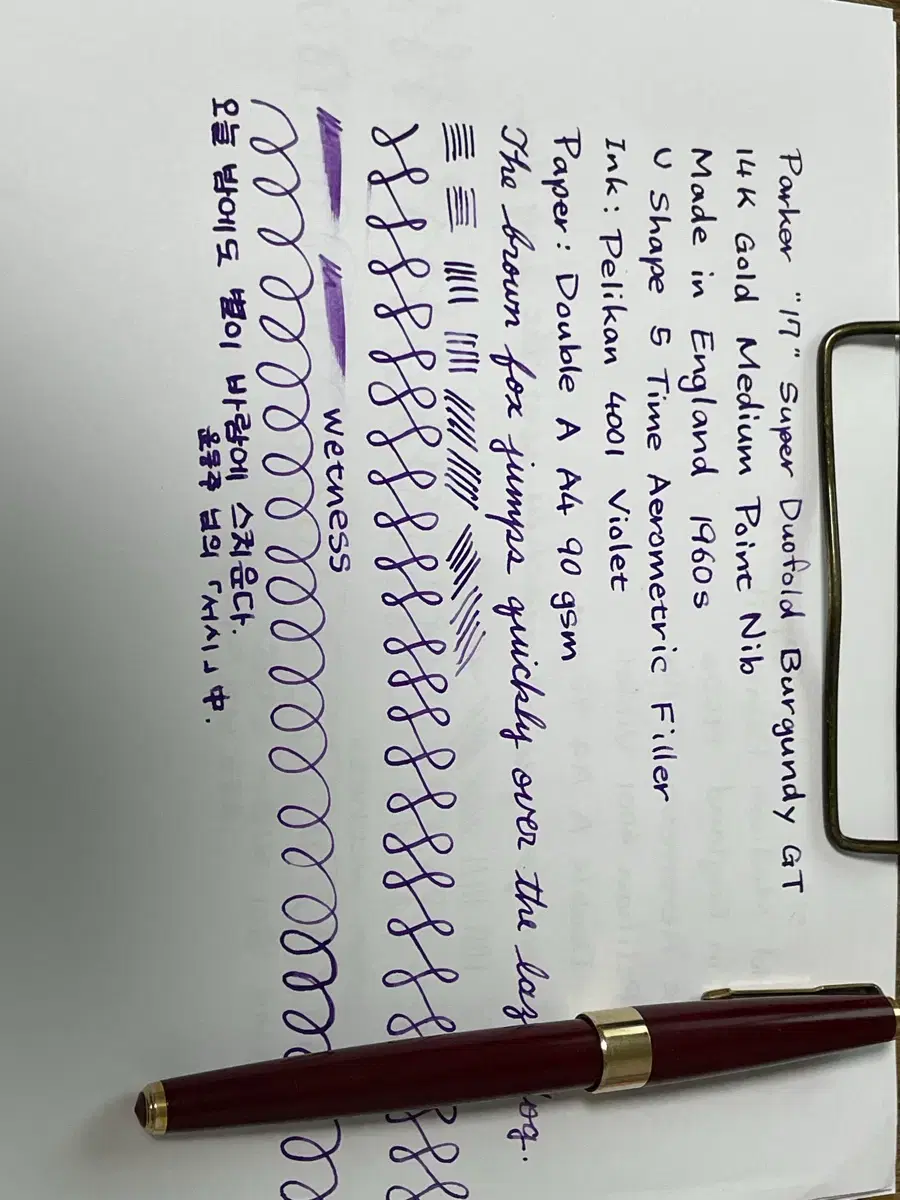 Parker "17" Super Duofold Burgundy GT
14K Gold Medium Point Nib
Made in England 1960s
U Shape 5 Time Aerometric Filler
Ink: Pelikan 4001 Violet
Paper: Double A A4 90 gsm
The brown fox jumps quickly over the
wetness
오늘 밤에도 별이 바람에 스치운다.
윤동주 님의 「서시」 中.